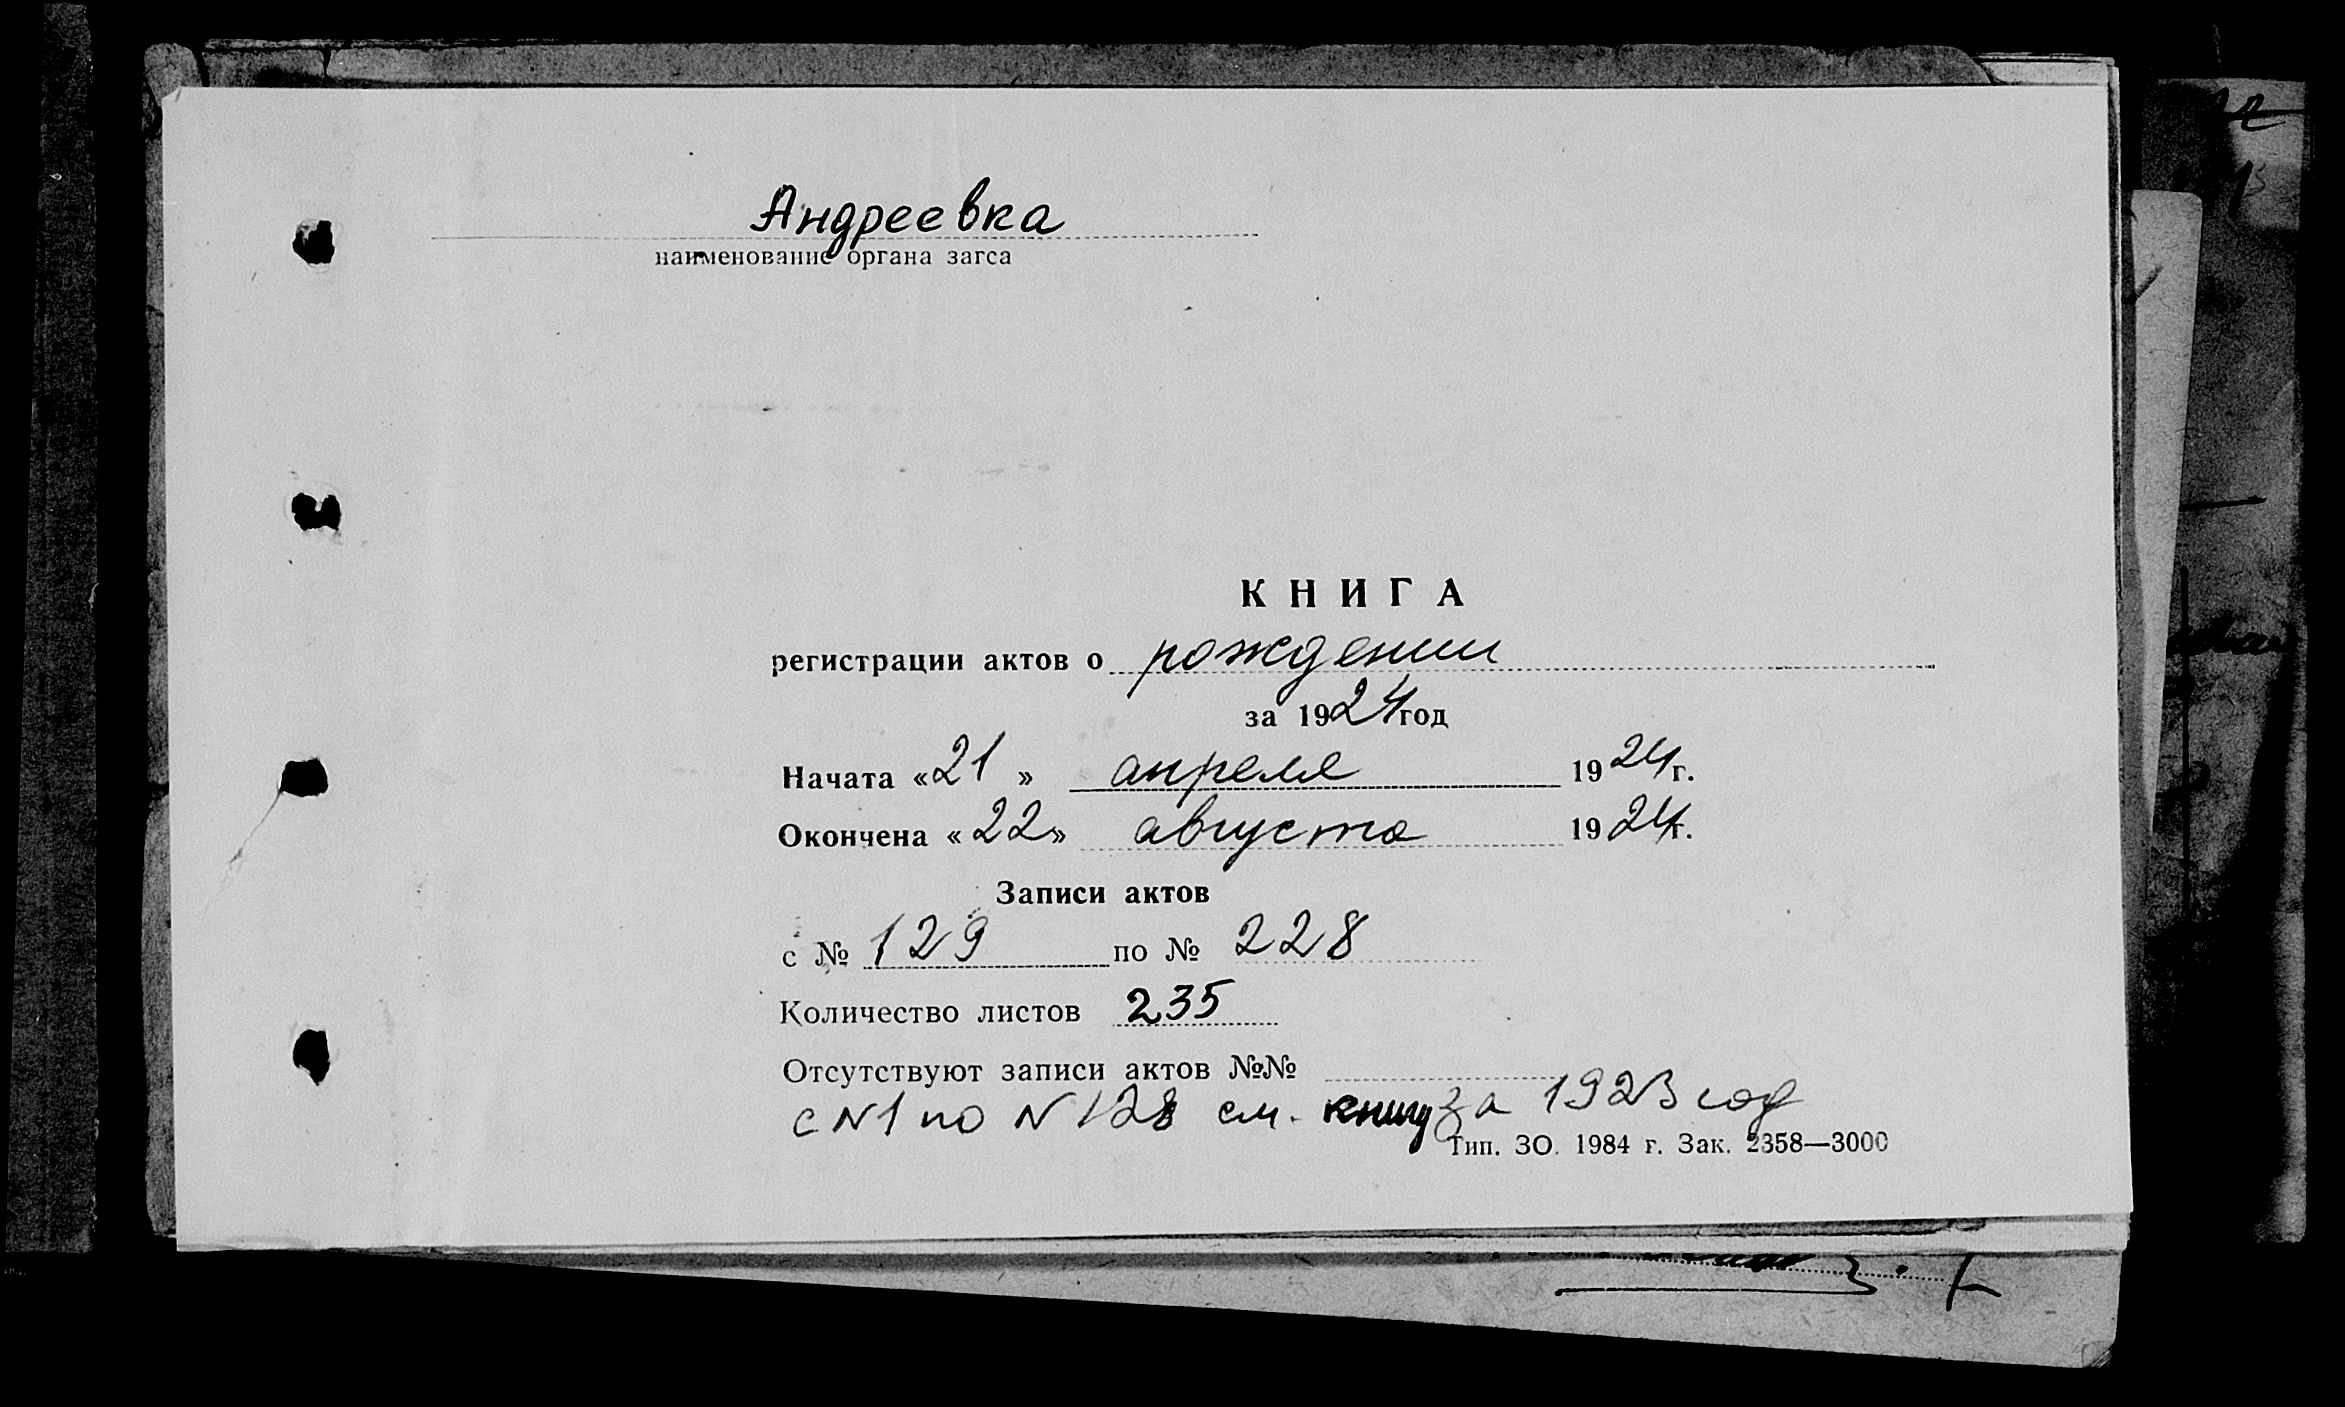 Андреевка
наименование органа загса
КНИГА
регистрации актов о рождении
за 1924 год
Начата «21» апреля 1924 г.
Окончена «22» августа 1924 г.
Записи актов
с № 129 по № 228
Количество листов 235
Отсутствуют записи актов №№
с N1 по N128 см. книгу за 1923 год
Тип. ЗО. 1984 г. Зак. 2358—3000